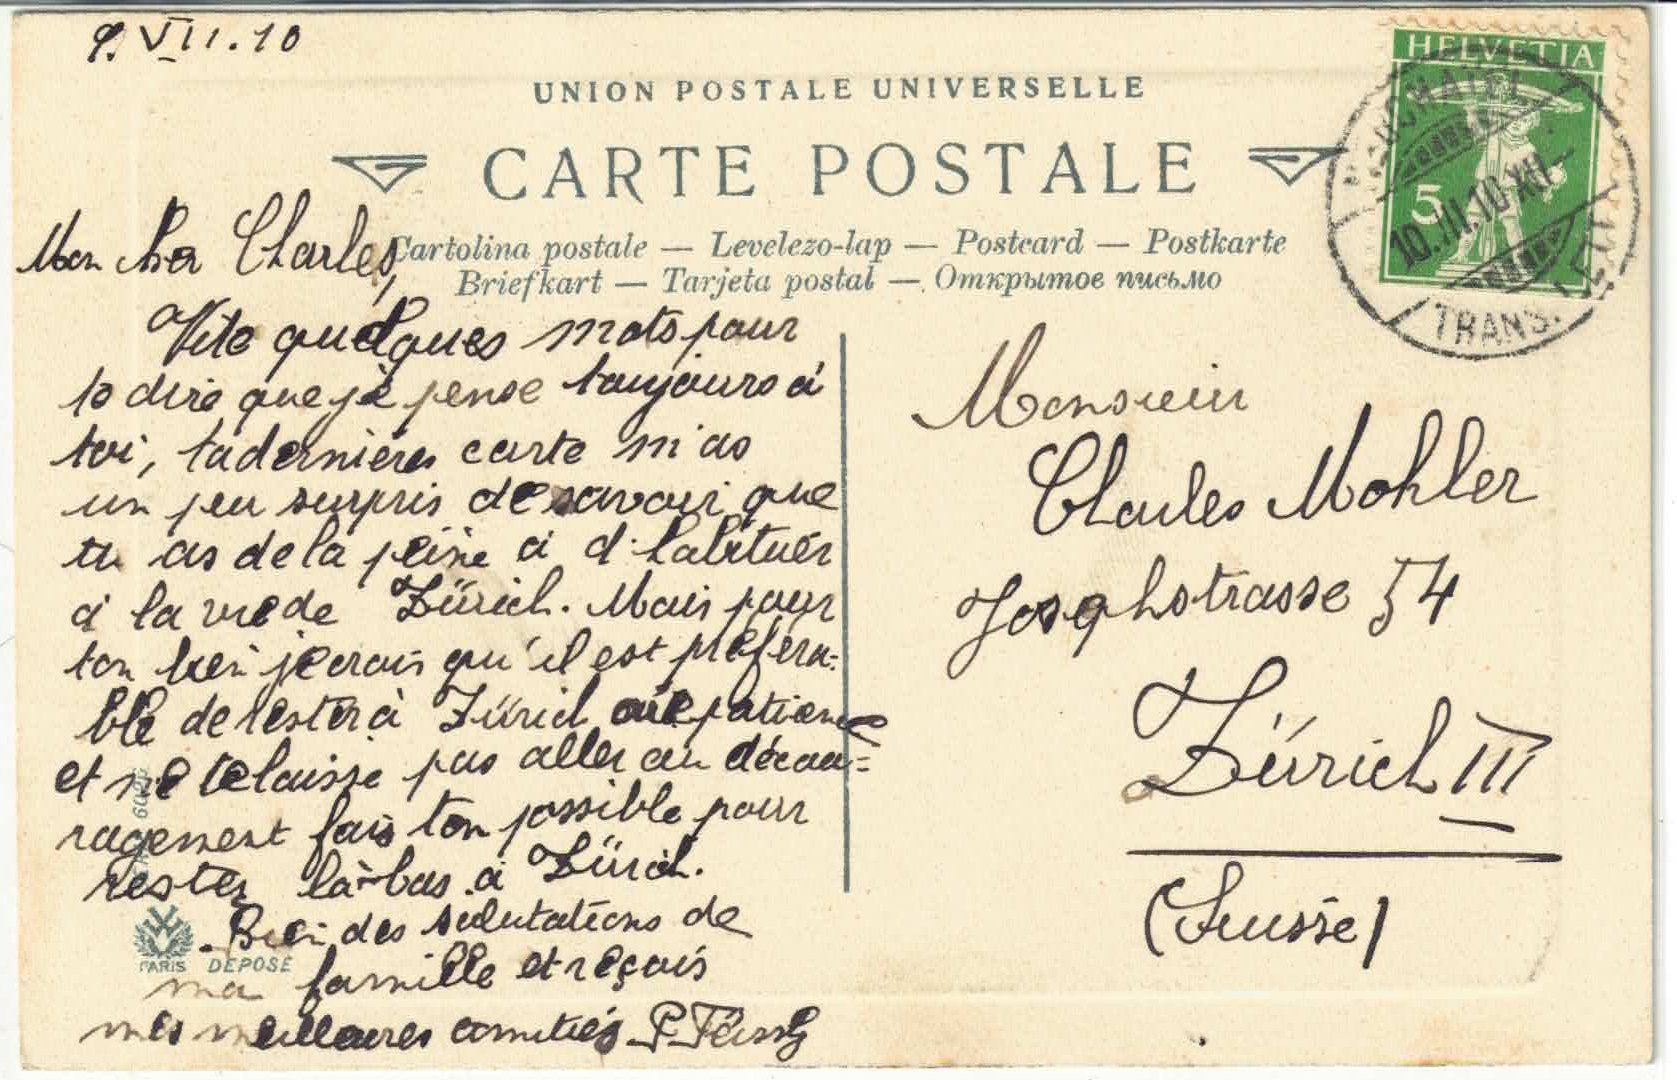 9. VII. 10
UNION POSTALE UNIVERSELLE
CARTE POSTALE
Cartolina postale — Levelezo-lap — Postcard — Postkarte
Briefkart — Tarjeta postal — Открытое письмо
HELVETIA
5
10. VII. 10 XII
TRANS.
Mon cher Charles,
Vite quelques mots pour
te dire que je pense toujours à
toi, ta dernières carte m'as
un peu surpris de savoir que
tu as de la peine à d'habituér
à la vie de Zürich. Mais pour
ton bien je crois qu'il est préféra-
ble de rester à Zürich aie patience
et ne te laisse pas aller au décou=
ragement fais ton possible pour
rester là-bas à Zürich.
Bien des salutations de
ma famille et reçois
mes meilleures amitiés P.
PARIS DÉPOSÉ
Monsieur
Charles Mohler
Josephstrasse 54
Zürich III
(Suisse)